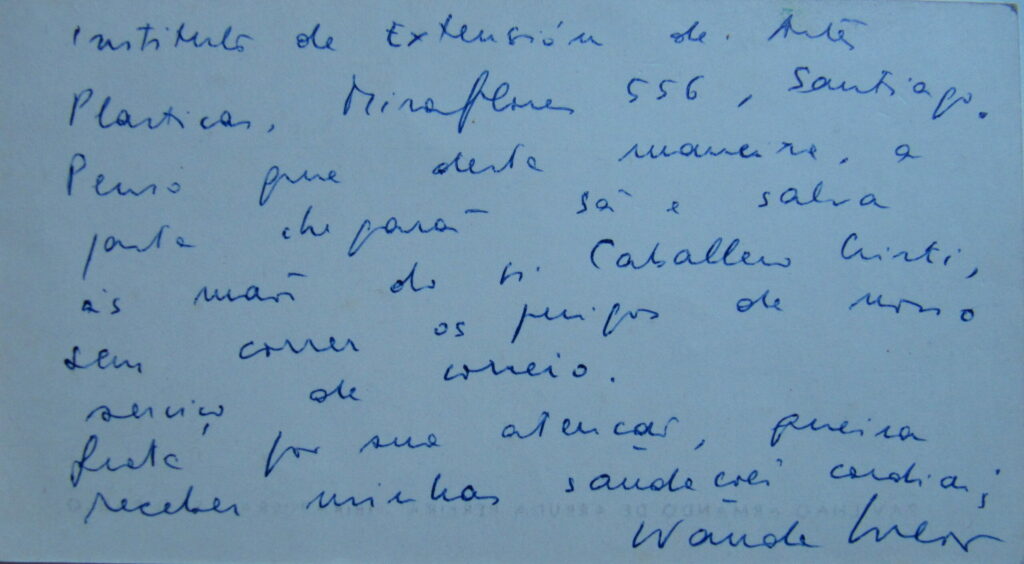 Instituto de Extensión de Artes
Plasticas, Miraflores 556, Santiago.
Penso que desta maneira, a
pasta chegará sã e salva
às mãos do sr. Caballero Cristi,
sem correr os perigos de nosso
serviço de correio.
Grata por sua atenção, queira
receber minhas saudações cordiais
Wanda Svevo
ARMANDO DE ARRUDA PEREIRA